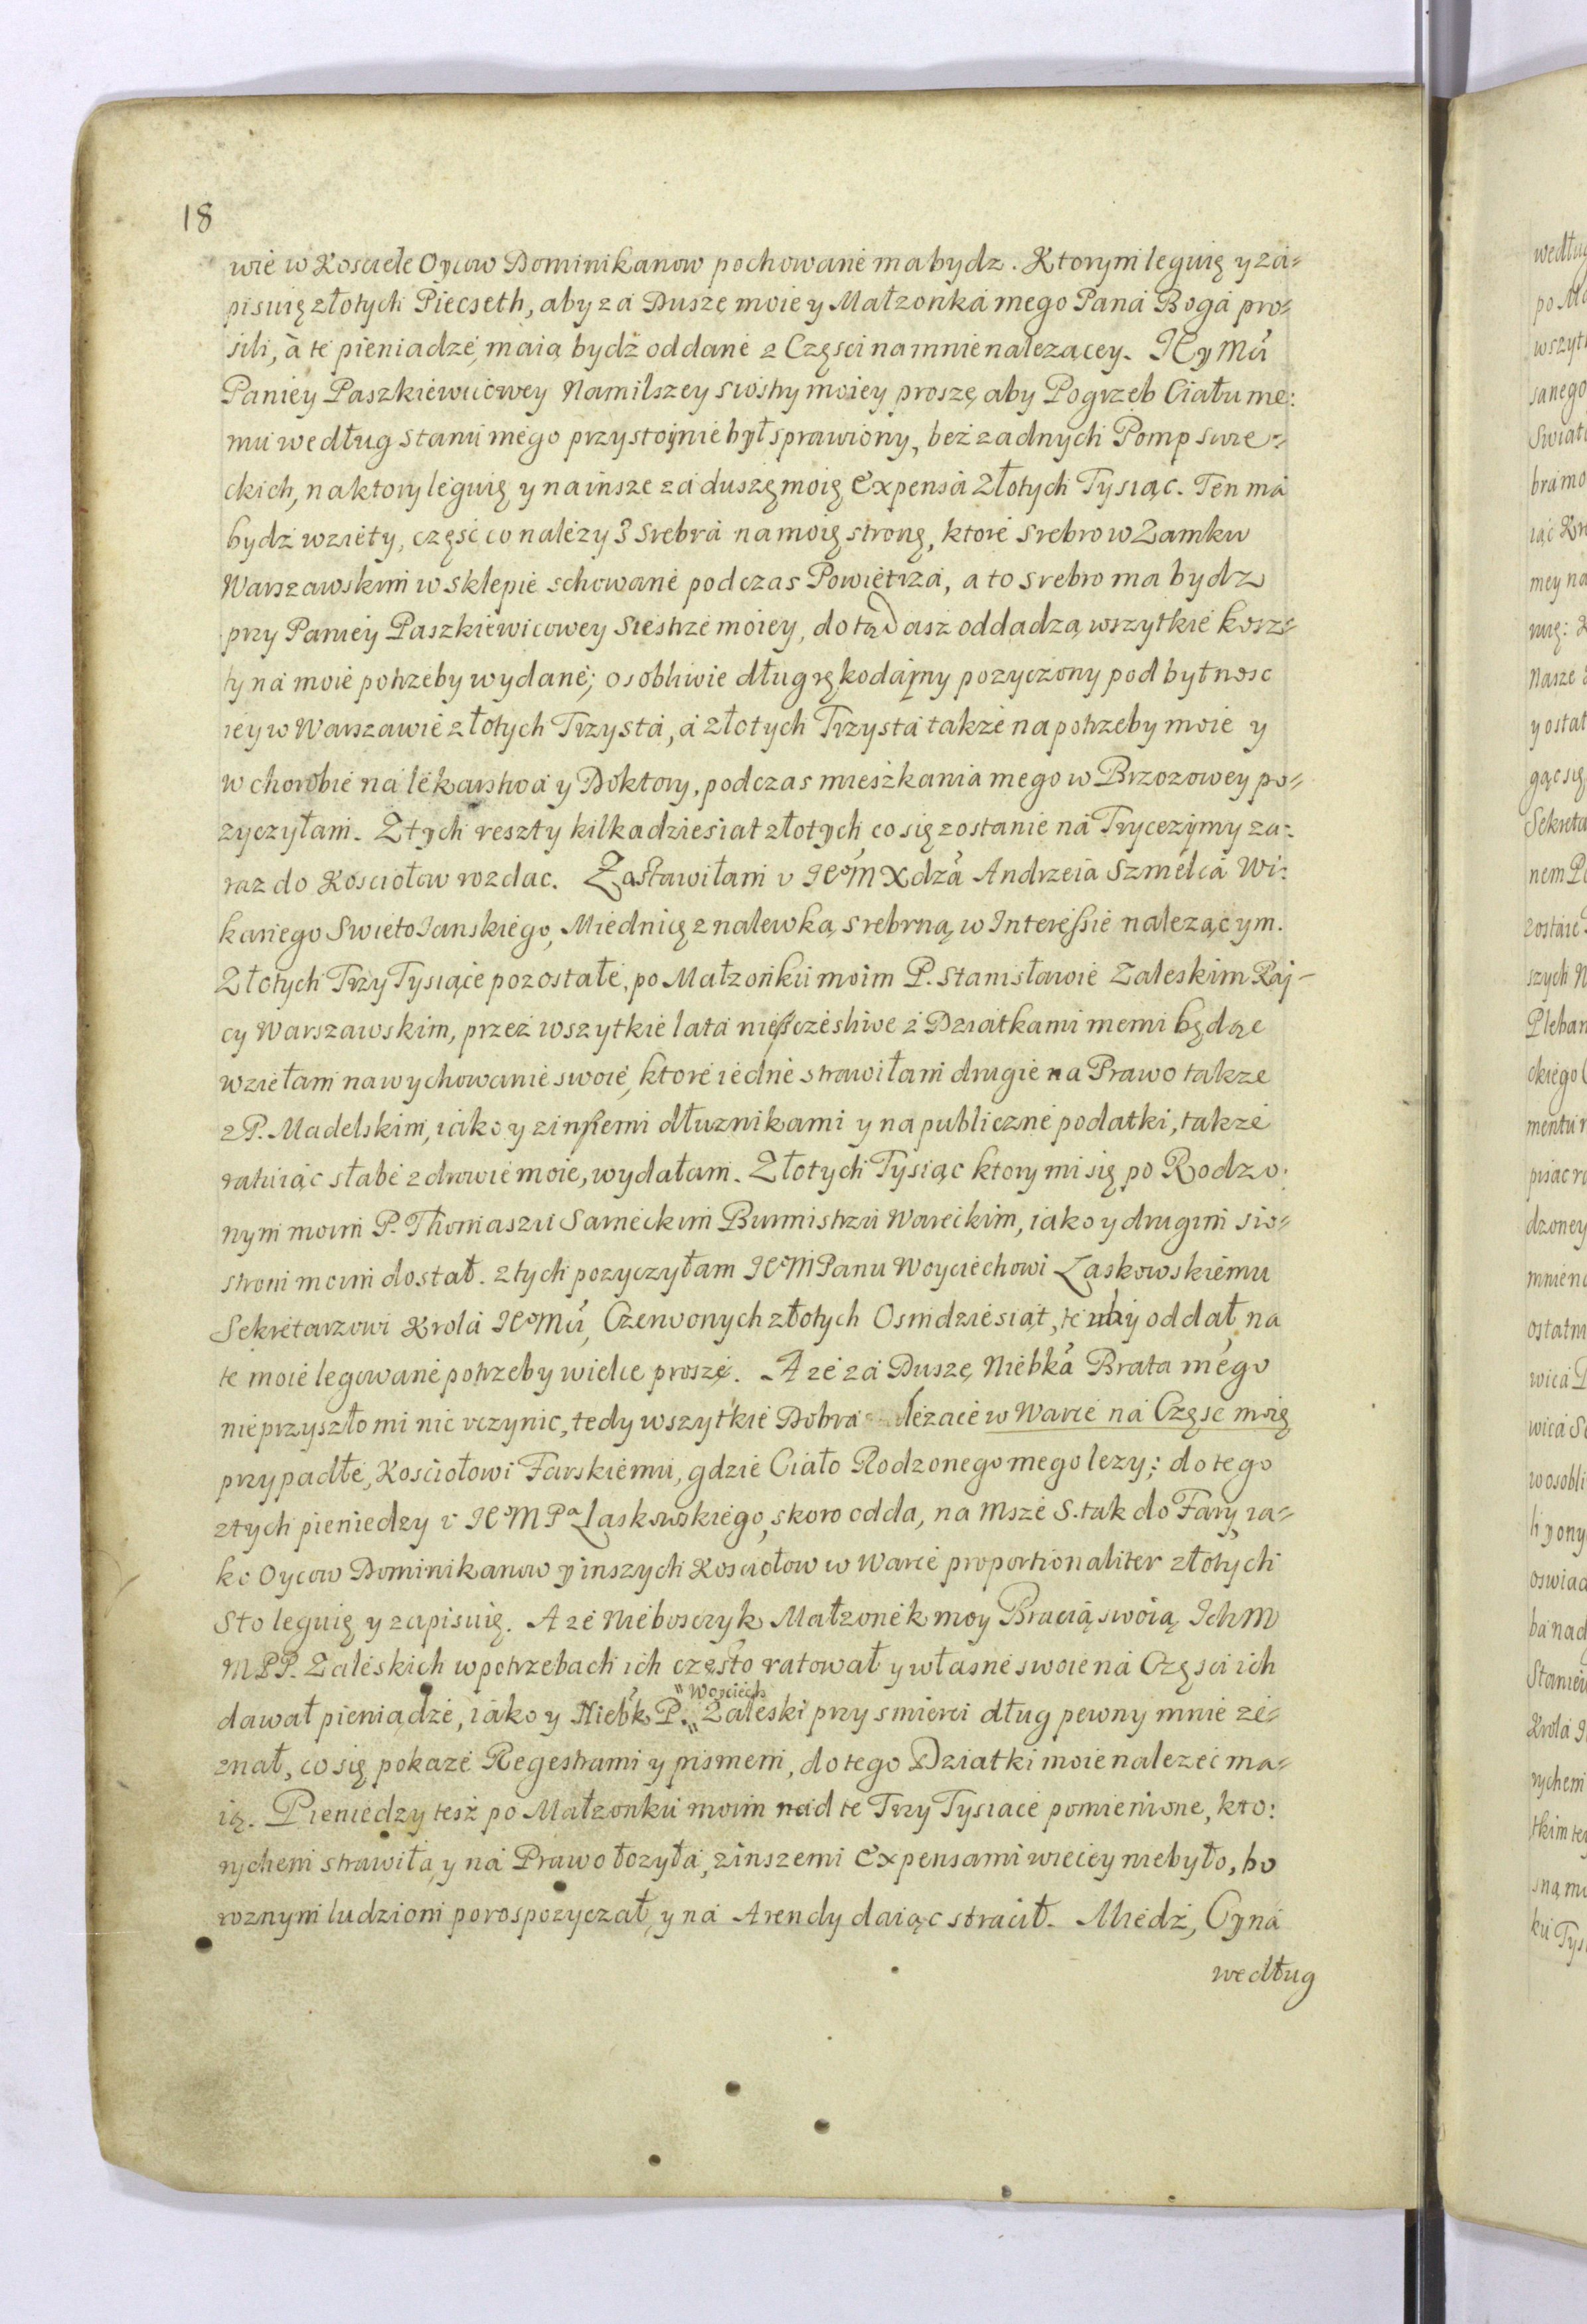 18
wie w Kosciele Oycow Dominikanow pochowane ma bydz. Ktorym leguię y za=
pisuię złotych Piecseth, aby za Duszę moię y Małzonka mego Pana Boga pro=
sili, à te pieniadze, maią bydź oddane z Części na mnie nalezącey. JeyMci
Paniey Paszkiewicowey Namilszey siostry moiey proszę, aby Pogrzeb Ciału me:
mu według stanu mego przystoynie był sprawiony, beż zadnych Pomp swie=
ckich, na ktory leguię y na insze za duszę moię Expensa Złotych Tysiąc. Ten ma
bydź wzięty, część co nalezy z srebra na moię stronę, ktore srebro w Zamku
Warszawskim w sklepie schowane podczas Powietrza, a to srebro ma bydz
przy Paniey Paszkiewicowey Siestrze moiey, dotąd asz oddadzą wszytkie kosz=
ty na moie potrzeby wydane; osobliwie dług rękodayny pozyczony pod bytnosc
iey w Warszawie złotych Trzysta, a złotych Trzysta takze na potrzeby moie y
w chorobie na lekarstwa y Doktory, podczas mieszkania mego w Brzozowey po=
zyczyłam. Z tych reszty kilkadziesiat złotych, co się zostanie na Trycezymy za:
raz do Kosciołow rozdac. Zastawiłam v JeoM Xdza Andrzeia Szmelca Wi:
kariego Swieto Ianskiego, Miednicę z nalewką srebrną, w Interessie nalezącym.
Złotych Trzy Tysiące pozostałe, po Małzonku moim P. Stanisławie Zaleskim Raj=
cy Warszawskim, przez wszytkie lata niesczesliwe z Dziatkami memi będąc
wziełam na wychowanie swoie, ktore iedne strawiłam drugie na Prawo takze
z P. Madelskim, iako y z inszemi dłuznikami y na publiczne podatki, takze
ratuiąc słabe zdrowie moie, wydałam. Złotych Tysiąc ktory mi się po Rodzo:
nym moim P. Thomaszu Sarneckim Burmistrzu Wareckim, iako y drugim sio=
strom moim dostał. z tych pozyczyłam JeoM Panu Woyciechowi Laskowskiemu
Sekretarzowi Krola JeoMci, Czerwonych złotych Osmdziesiąt, te aby oddał na
te moie legowane potrzeby wielce proszę. A ze za Duszę Niebka Brata mego
nie przyszło mi nic vczynic, tedy wszytkie Dobra lezace w Warce na Częsc moię
przypadłe, Kosciołowi Farskiemu, gdzie Ciało Rodzonego mego lezy; do tego
z tych pieniedzy v JeoM Pa Laskowskiego, skoro odda, na Msze S. tak do Fary, ia=
ko Oycow Dominikanow y inszych Kosciołow w Warce proportionaliter złotych
sto leguię y zapisuię. A ze Nieboszczyk Małzonek moy Bracią swoią Ich M
M PP. Zaleskich w potrzebach ich często ratował y własne swoie na Częsci ich
dawał pieniądze, iako y Niebk P. "Woyciech" Zaleski przy smierci dług pewny mnie ze=
znał, co się pokaze Regestrami y pismem, do tego Dziatki moie nalezec ma=
ią. Pieniedzy tesz po Małzonku moim nad te Trzy Tysiace pomienione, kto:
rychem strawiła, y na Prawo łozyła, z inszemi Expensami wiecey nie było, bo
roznym ludziom porospozyczał, y na Arendy daiąc stracił. Miedź, Cyna
według